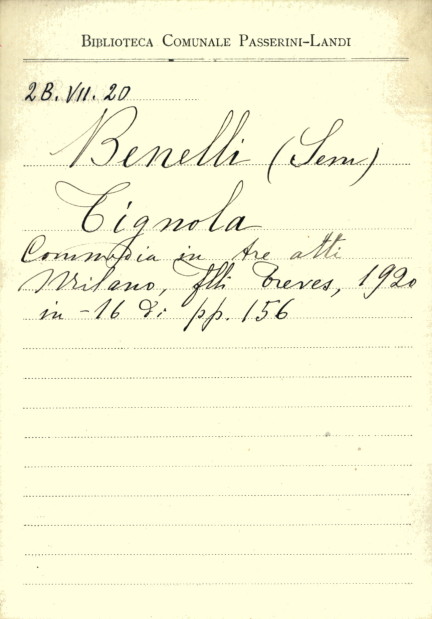 BIBLIOTECA COMUNALE PASSERINI-LANDI
2B. VII. 20
Benelli (Sem)
Tignola
Commedia in tre atti
Milano, flli Treves, 1920
in -16 di pp. 156